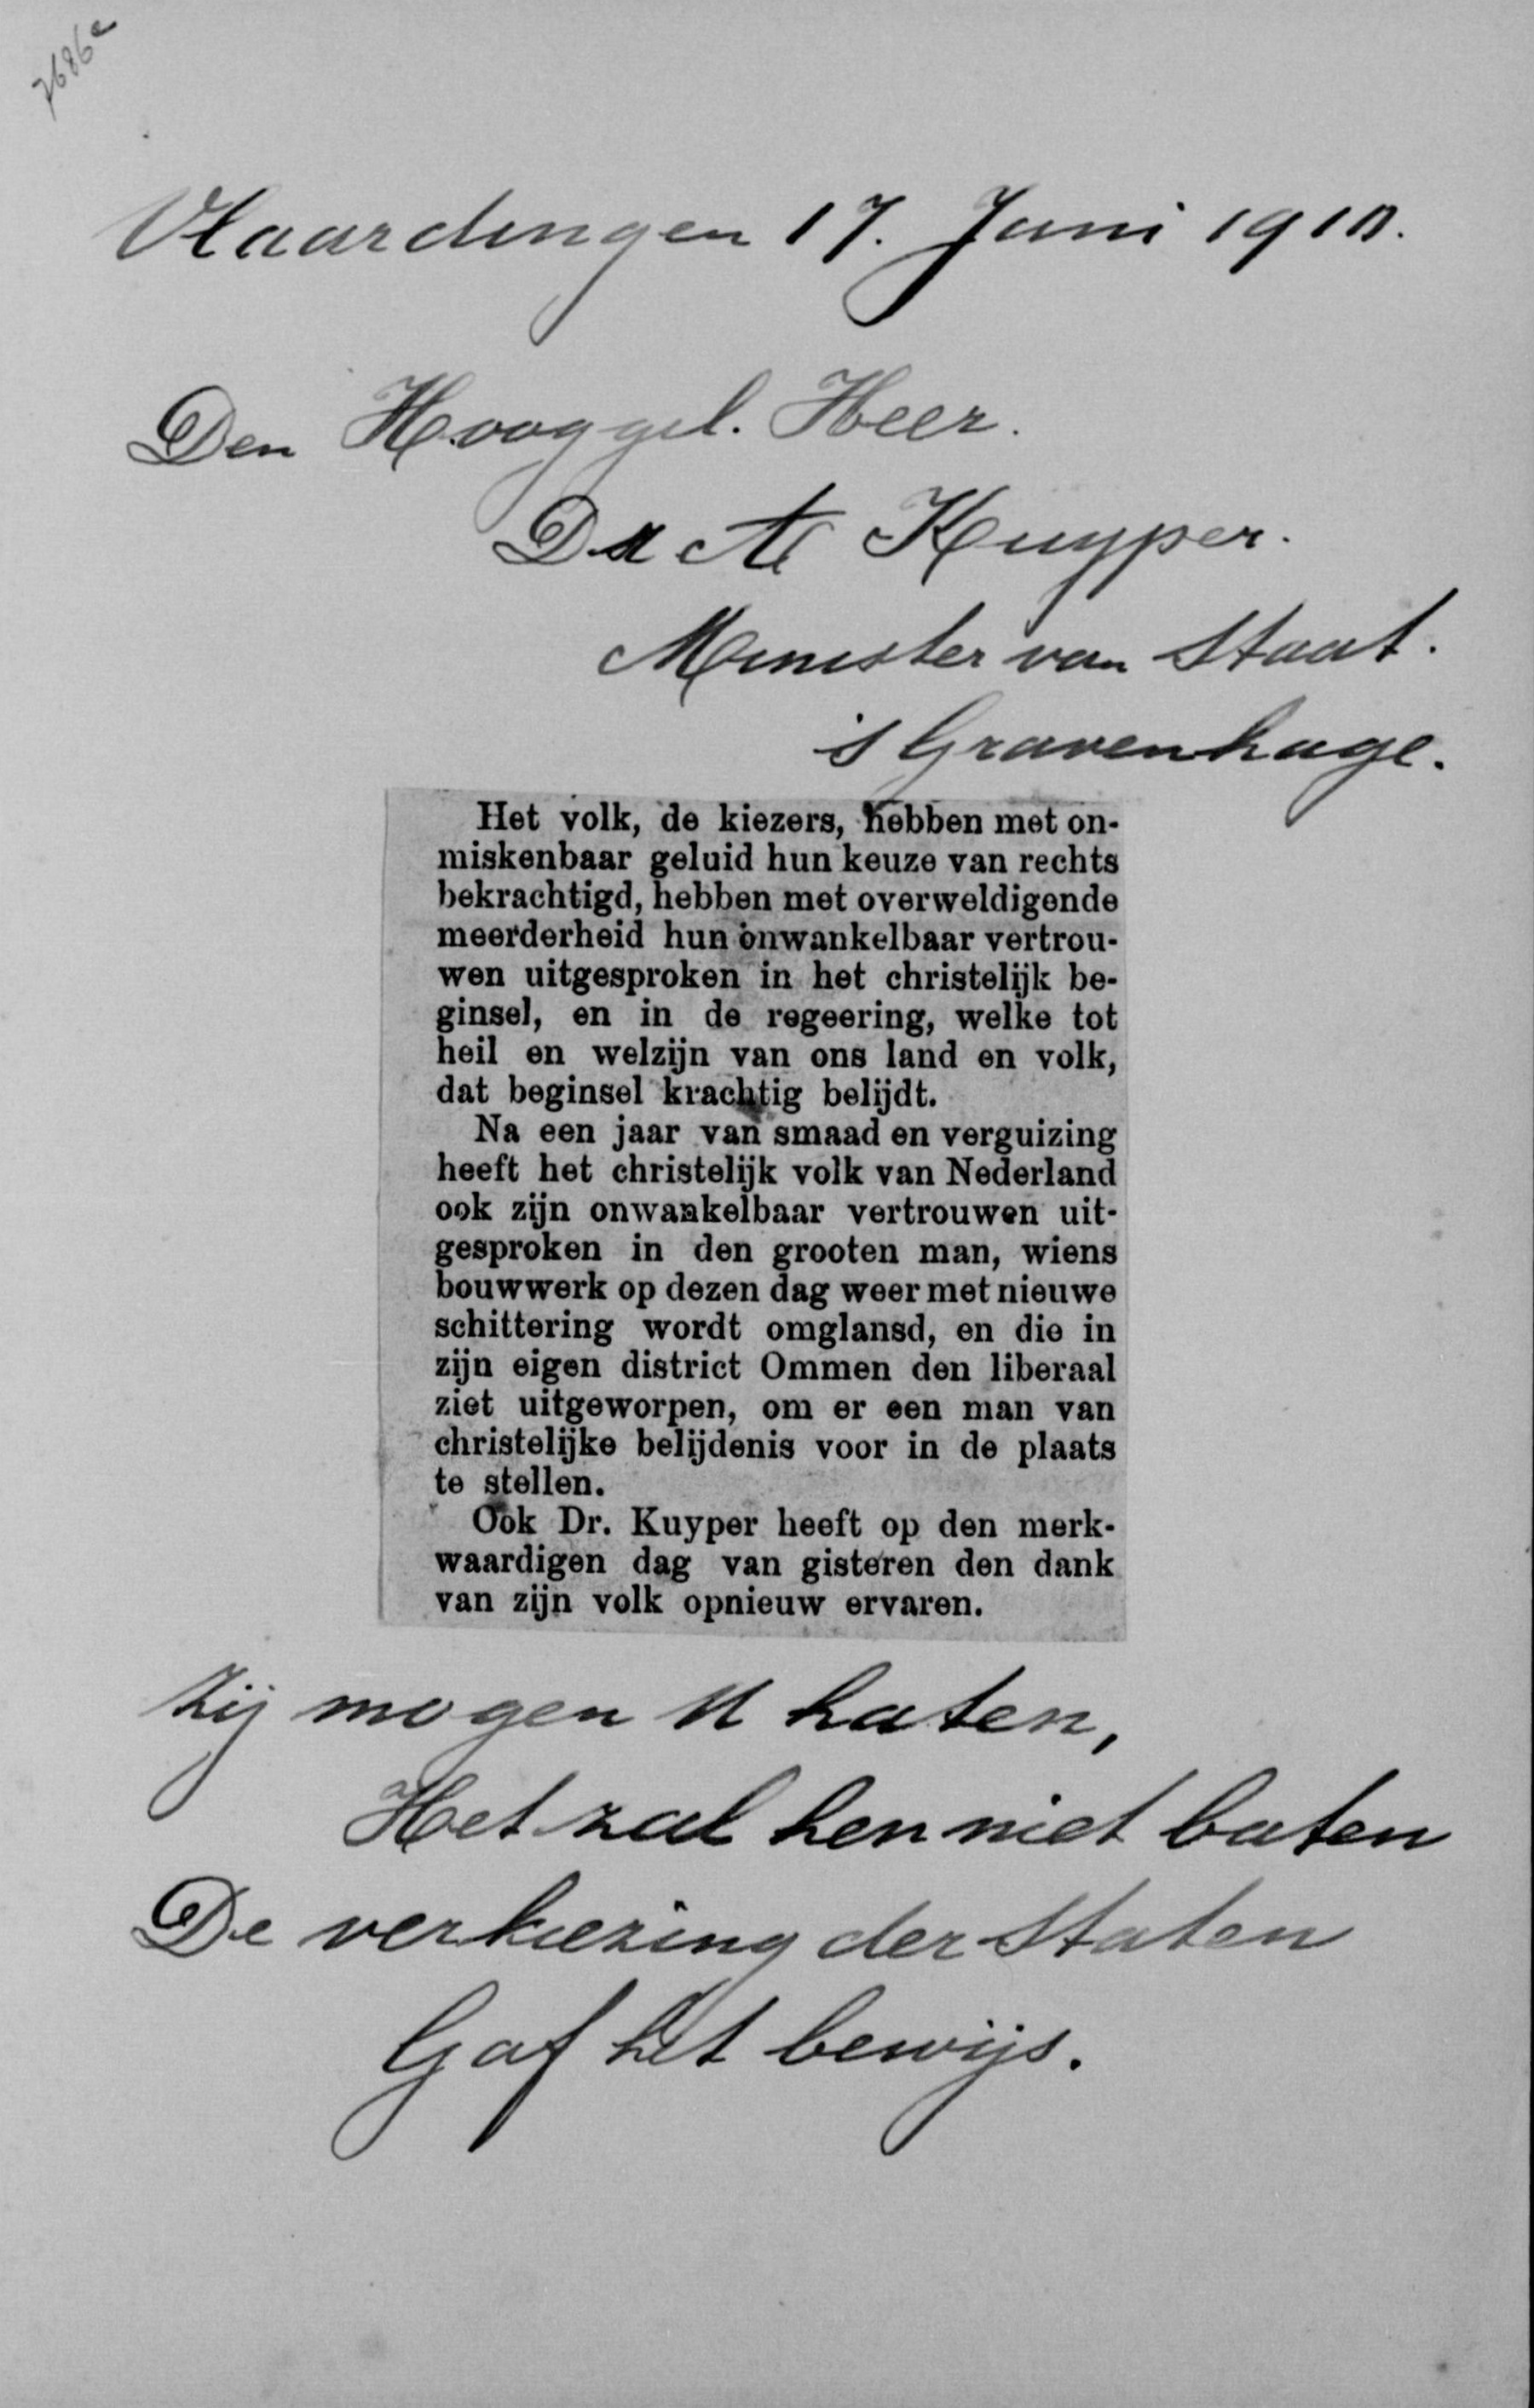 7686a
Vlaardingen 17. Juni 1910.
Den Hooggel. Heer.
Dr A Kuyper.
Minister van Staat.
's Gravenhage.
Het volk, de kiezers, hebben met on-
miskenbaar geluid hun keuze van rechts
bekrachtigd, hebben met overweldigende
meerderheid hun onwankelbaar vertrou-
wen uitgesproken in het christelijk be-
ginsel, en in de regeering, welke tot
heil en welzijn van ons land en volk,
dat beginsel krachtig belijdt.
Na een jaar van smaad en verguizing
heeft het christelijk volk van Nederland
ook zijn onwankelbaar vertrouwen uit-
gesproken in den grooten man, wiens
bouwwerk op dezen dag weer met nieuwe
schittering wordt omglansd, en die in
zijn eigen district Ommen den liberaal
ziet uitgeworpen, om er een man van
christelijke belijdenis voor in de plaats
te stellen.
Ook Dr. Kuyper heeft op den merk-
waardigen dag van gisteren den dank
van zijn volk opnieuw ervaren.
Zij mogen U haten,
Het zal hen niet baten
De verkiezing der Staten
Gaf het bewijs.